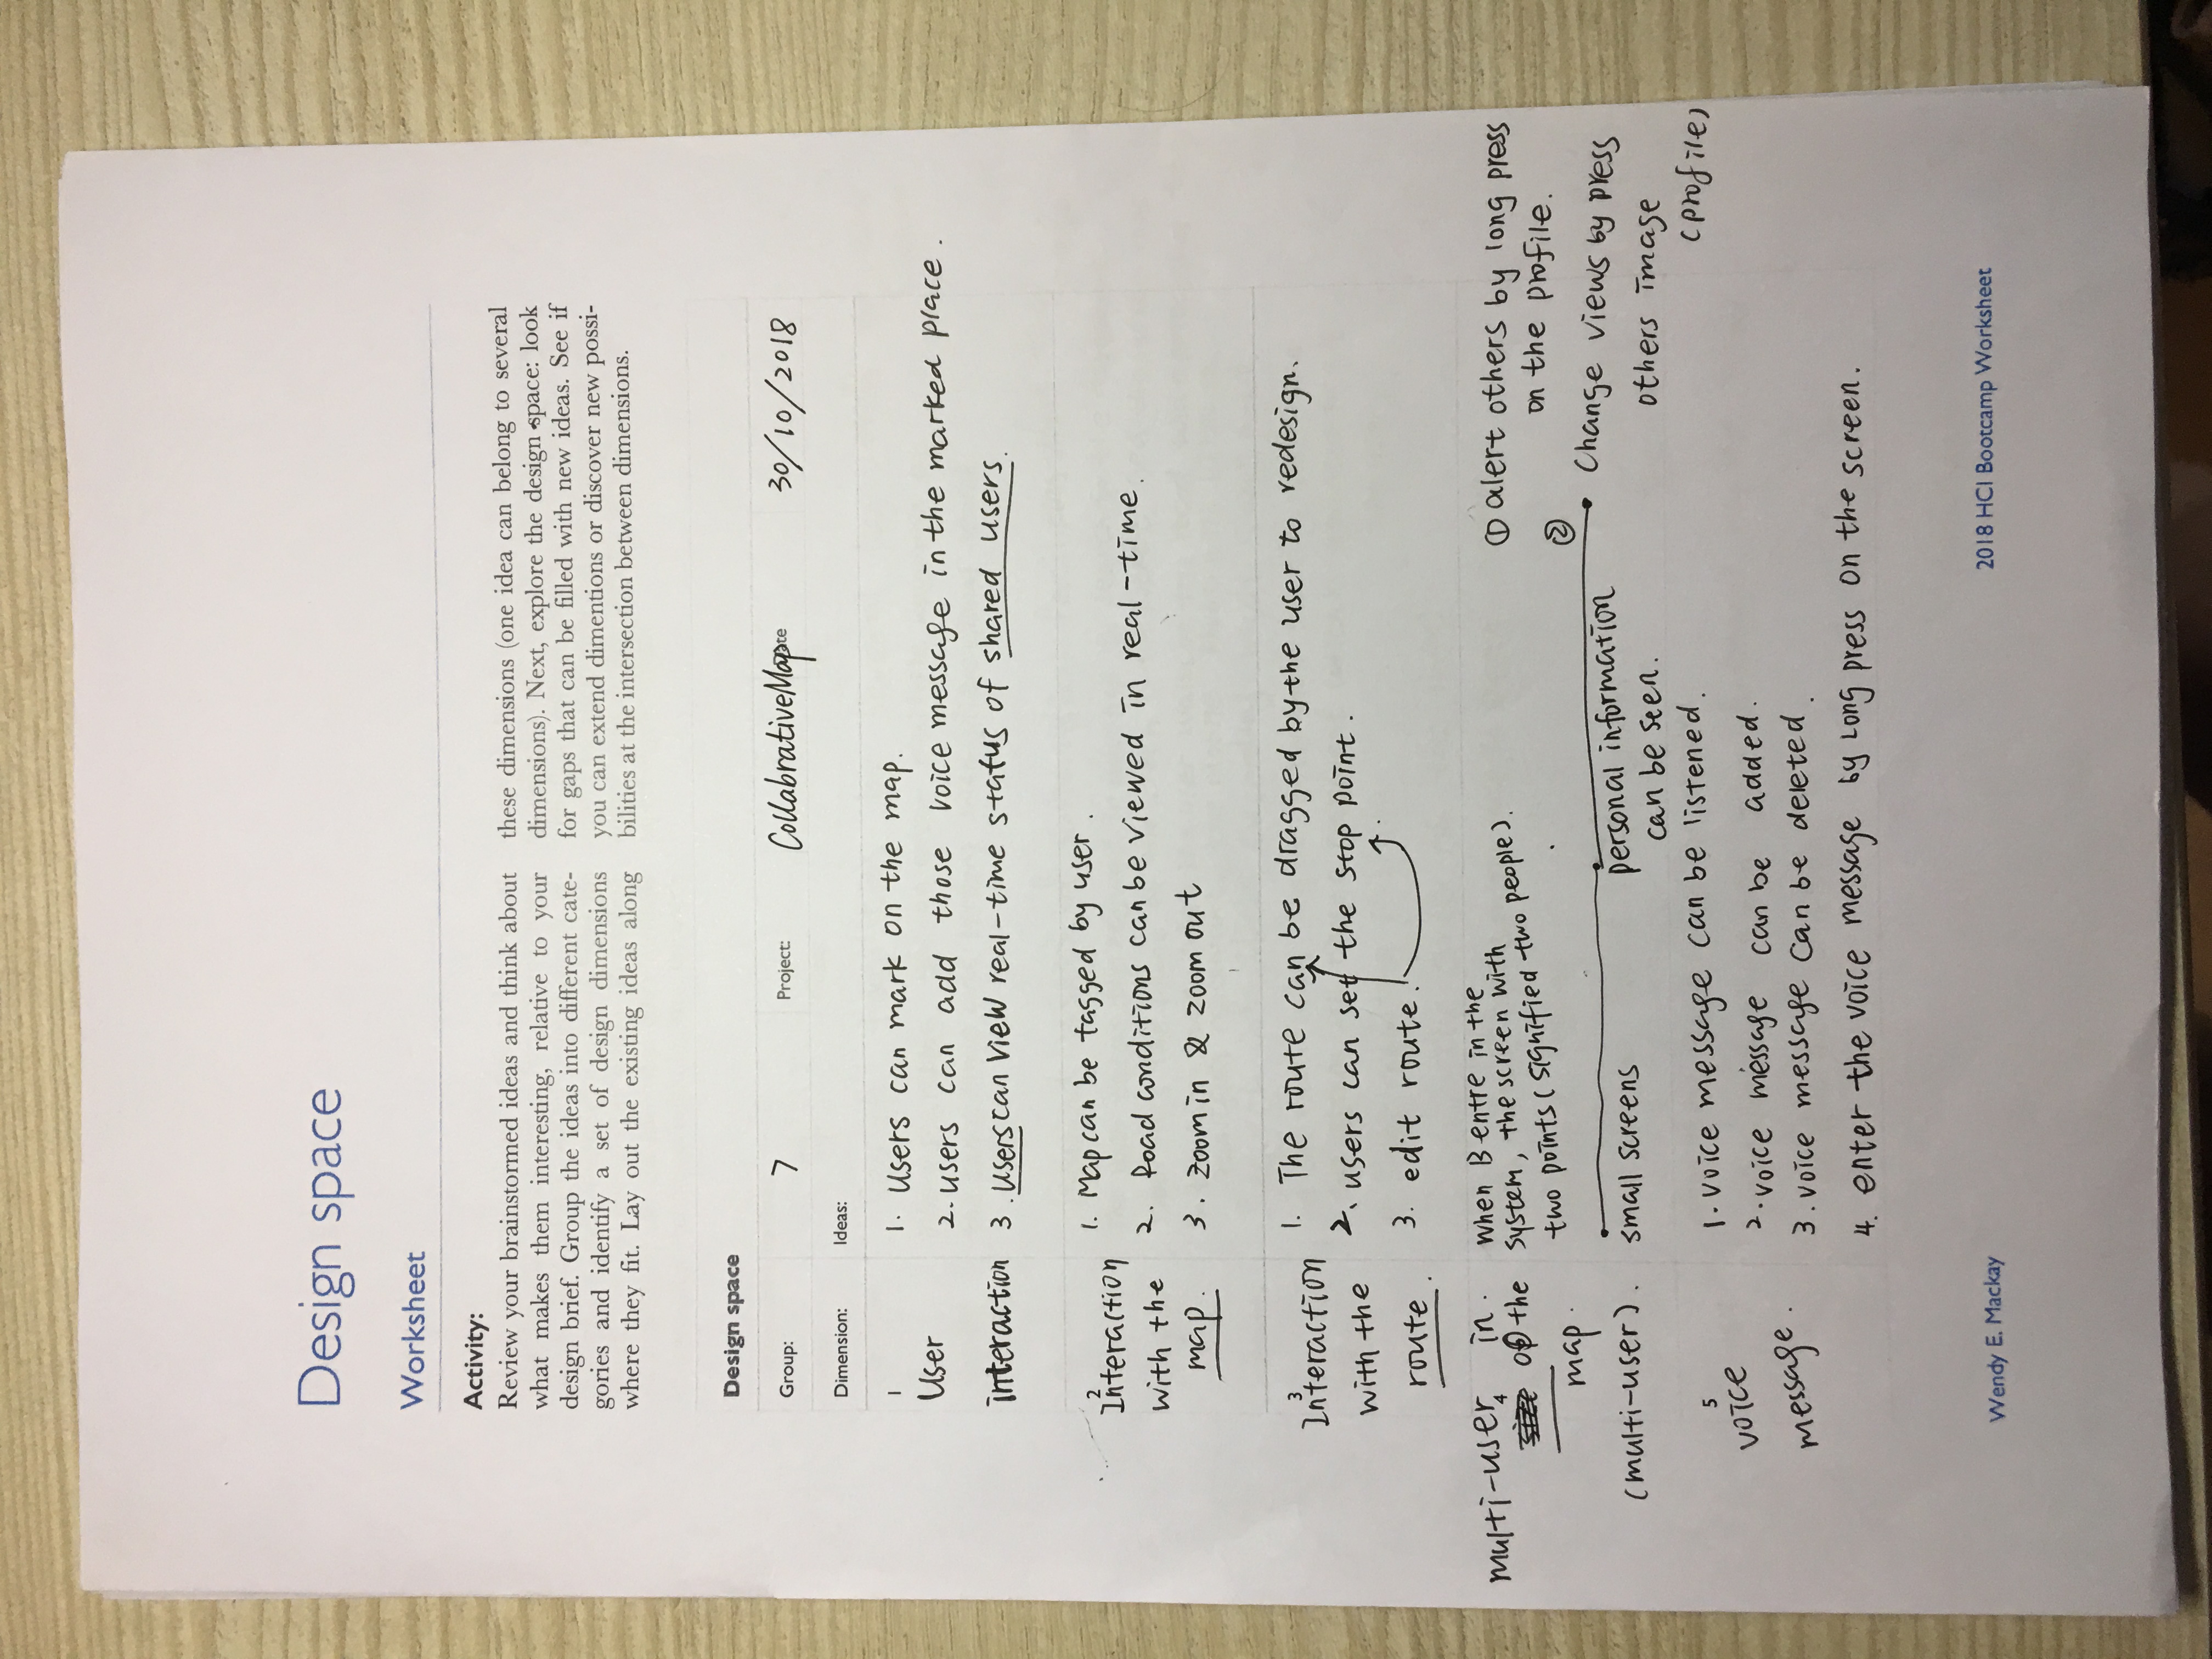 Design space
Worksheet
Activity:
Review your brainstormed ideas and think about
what makes them interesting, relative to your
design brief. Group the ideas into different cate-
gories and identify a set of design dimensions
where they fit. Lay out the existing ideas along
these dimensions (one idea can belong to several
dimensions). Next, explore the design space: look
for gaps that can be filled with new ideas. See if
you can extend dimentions or discover new possi-
bilities at the intersection between dimensions.
Design space
Group: 7 Project: CollabrativeMap Date 30/10/2018
Dimension: Ideas:
1
User
interaction
1. Users can mark on the map.
2. users can add those voice message in the marked place.
3. users can view real-time status of shared users.
2
Interaction
with the
map.
1. Map can be tagged by user.
2. Road conditions can be viewed in real-time.
3. zoom in & zoom out
3
Interaction
with the
route.
1. The route can be dragged by the user to redesign.
2. users can set the stop point.
3. edit route.
4
multi-user in.
the
map.
(multi-user).
when B entre in the
system, the screen with
two points (signified two people).
small screens
personal information
can be seen.
① alert others by long press
on the profile.
②
Change views by press
others image
(profile)
5
voice
message.
1. voice message can be listened.
2. voice message can be added.
3. voice message can be deleted.
4. enter the voice message by long press on the screen.
Wendy E. Mackay
2018 HCI Bootcamp Worksheet